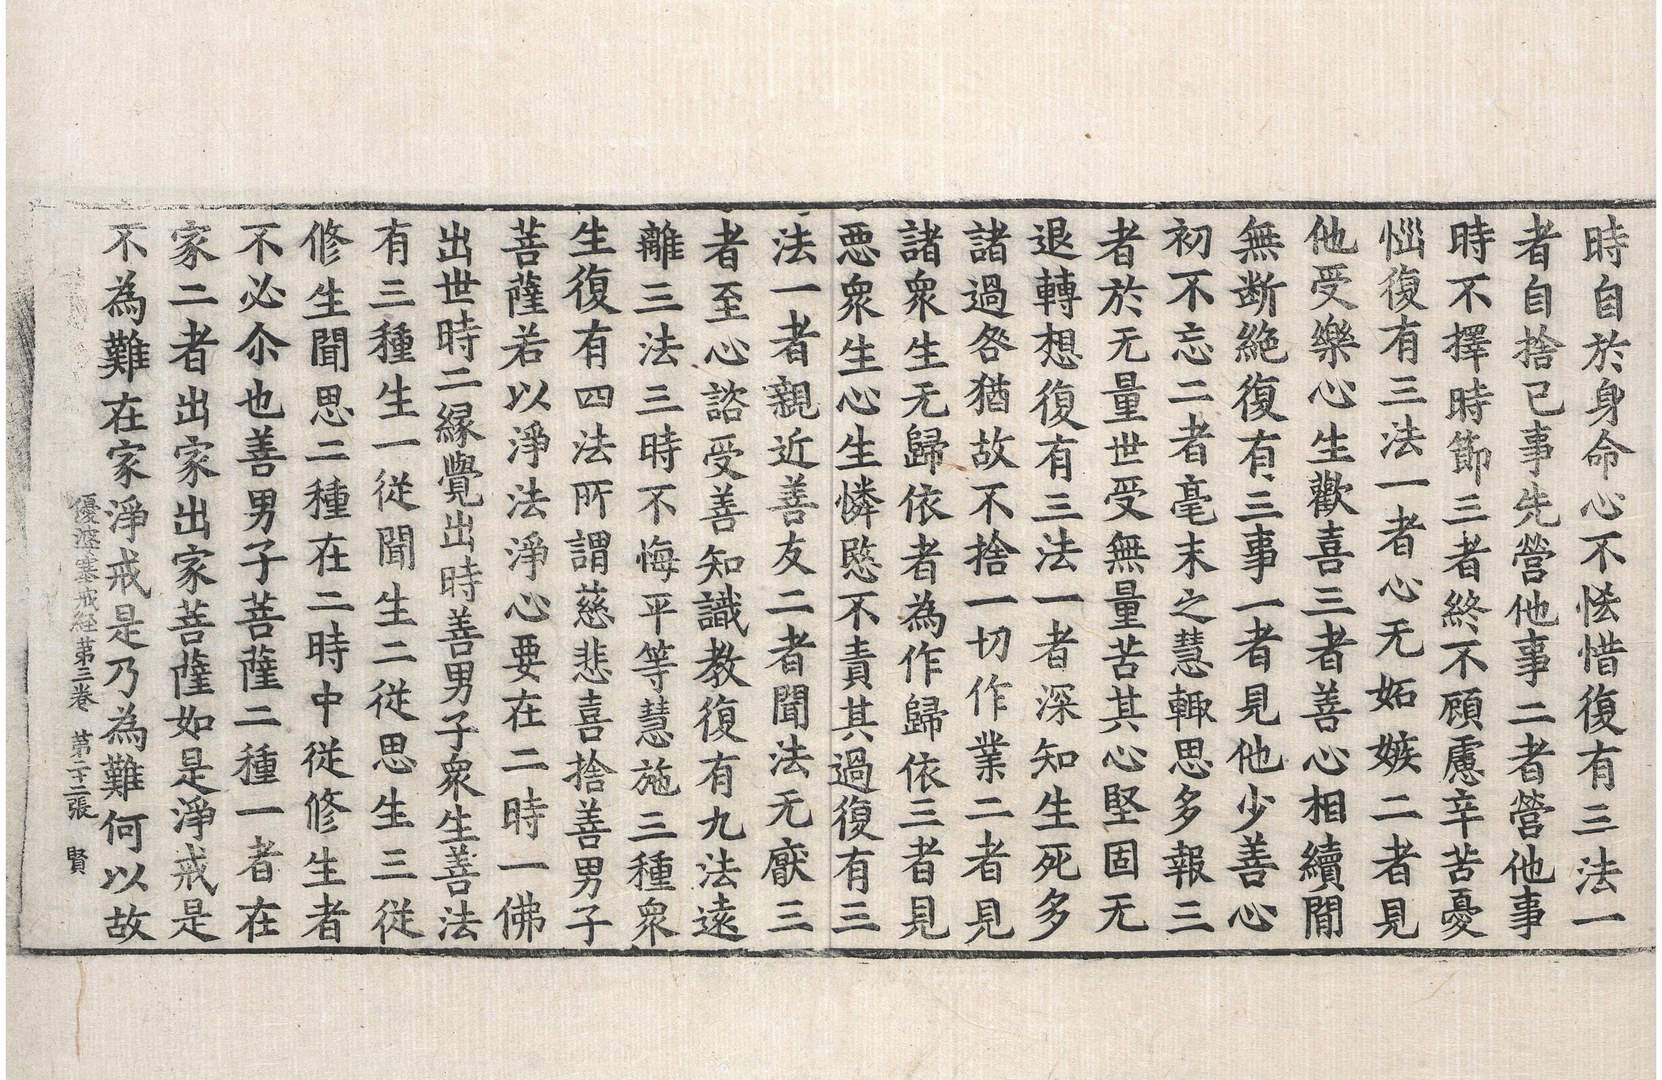 時自於身命心不悋惜復有三法一
者自捨已事先營他事二者營他事
時不擇時節三者終不顧慮辛苦憂
惱復有三法一者心无妬嫉二者見
他受樂心生歡喜三者善心相續閒
無断絶復有三事一者見他少善心
初不忘二者毫末之慧輙思多報三
者於无量世受無量苦其心堅固无
退轉想復有三法一者深知生死多
諸過咎猶故不捨一切作業二者見
諸衆生无歸依者為作歸依三者見
惡衆生心生憐愍不責其過復有三
法一者親近善友二者聞法无厭三
者至心諮受善知識教復有九法遠
離三法三時不悔平等慧施三種衆
生復有四法所謂慈悲喜捨善男子
菩薩若以淨法淨心要在二時一佛
出世時二緣覺出時善男子衆生善法
有三種生一從聞生二從思生三從
修生聞思二種在二時中從修生者
不必尒也善男子菩薩二種一者在
家二者出家出家菩薩如是淨戒是
不為難在家淨戒是乃為難何以故
優婆塞戒経苐三卷 苐二十二張 賢